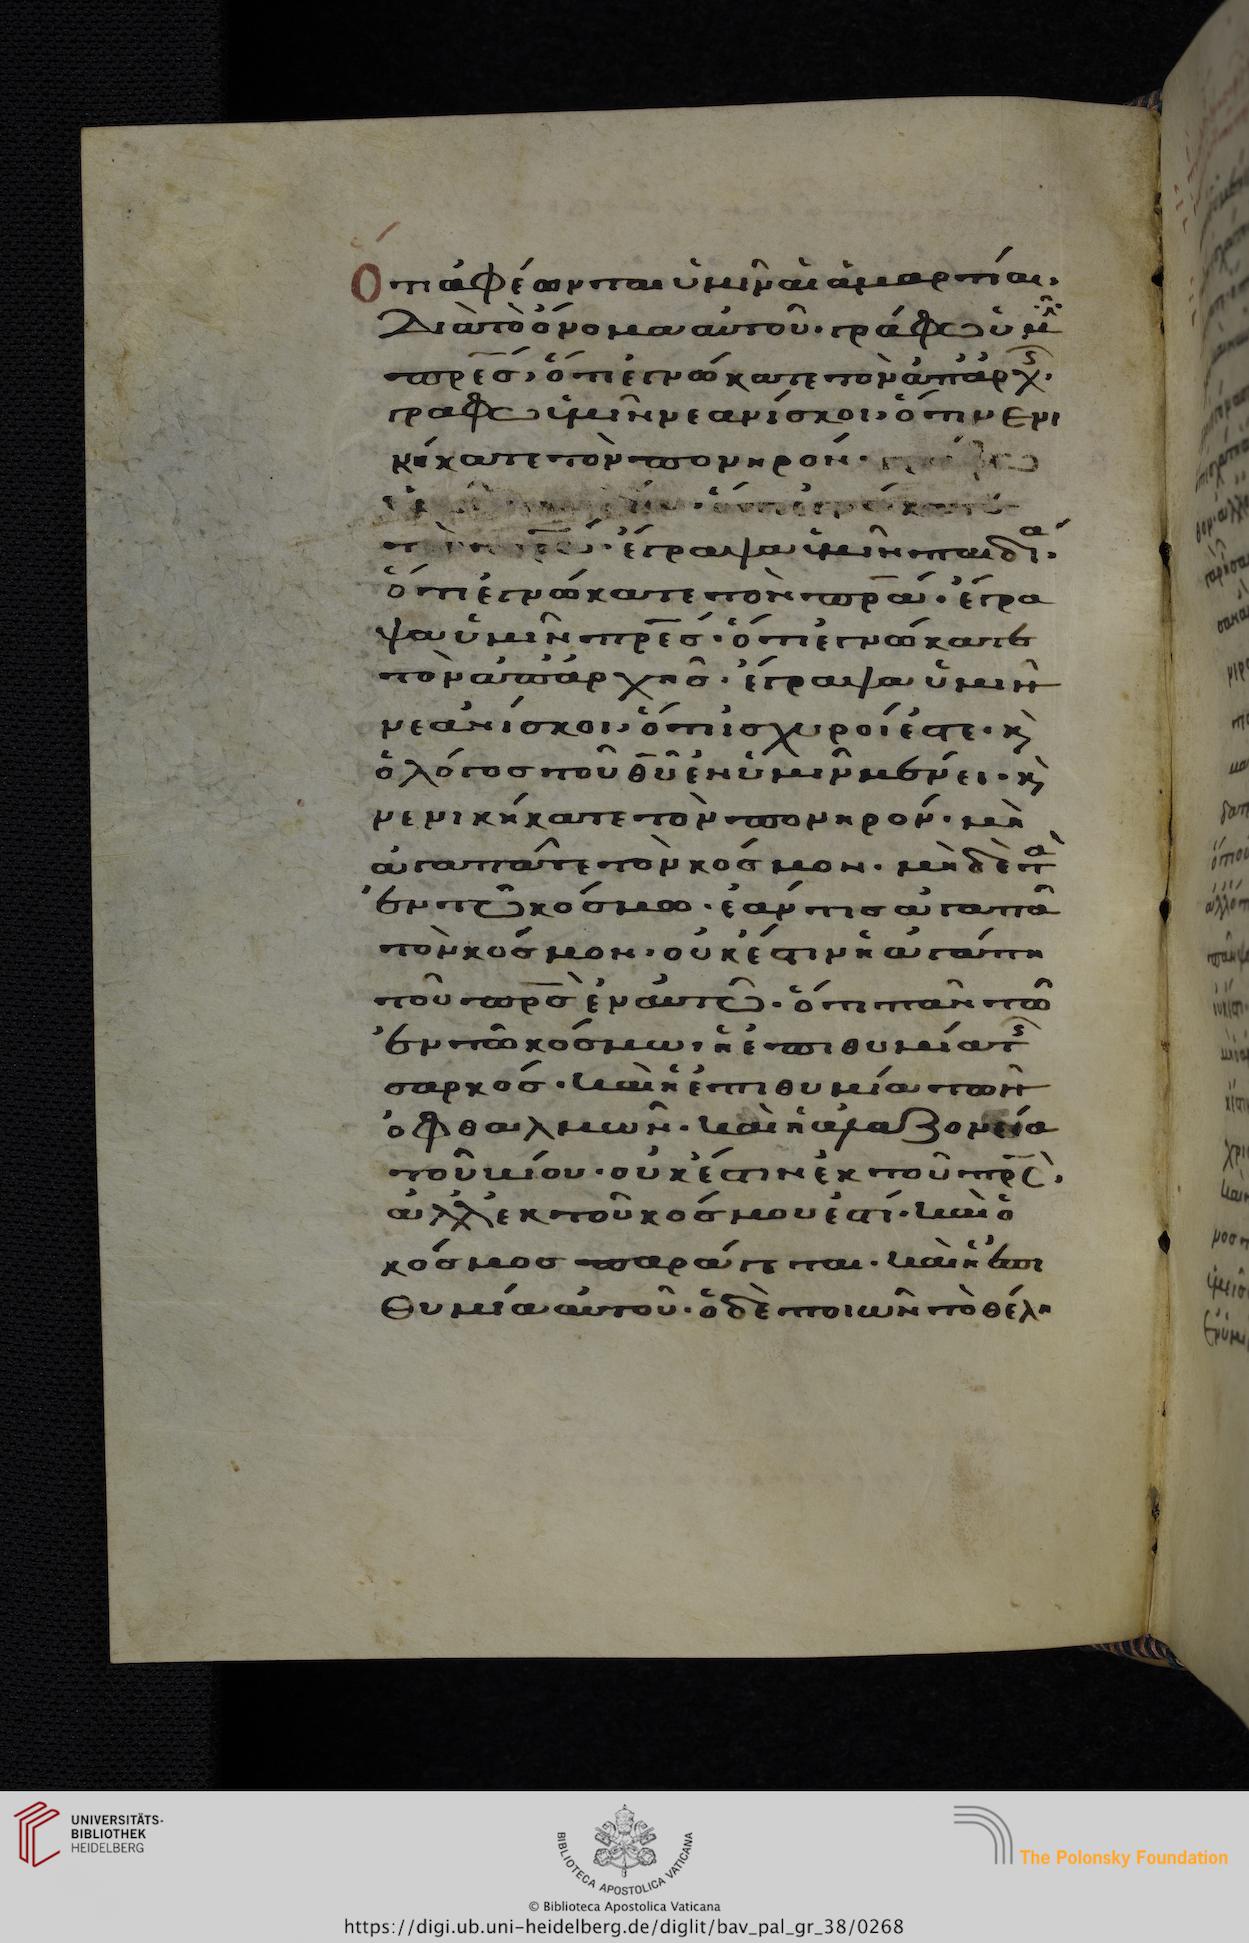 Ὅτι ἀφέωνται ὑμῖν αἱ ἁμαρτίαι,
διὰ τὸ ὄνομα αὐτοῦ· γράφω ὑμῖ
πρες, ὅτι ἐγνώκατε τὸν ἀπ' ἀρχς·
γράφω ὑμῖν νεανίσκοι, ὅτι νενι
κήκατε τὸν πονηρόν·
ἐγνώκατε
ἔγραψα ὑμῖν παιδία·
ὅτι ἐγνώκατε τὸν πρα· ἔγρα
ψα ὑμῖν πρες· ὅτι ἐγνώκατε
τὸν ἀπ' ἀρχῆς· ἔγραψα ὑμῖν
νεανίσκοι, ὅτι ἰσχυροί ἐστε· κὶ
ὁ λόγος τοῦ θυ ἐν ὑμῖν μένει· κὶ
νενικήκατε τὸν πονηρόν· μὴ
ἀγαπᾶτε τὸν κόσμον· μὴ δὲ τὰ
ἐν τῷ κόσμω· ἐάν τις ἀγαπᾶ
τὸν κόσμον· οὐκ ἔστιν ἡ ἀγάπη
τοῦ πρς ἐν αὐτῷ· ὅτι πᾶν τῶ
ἐν τῶ κόσμω, ἡ ἐπιθυμία τς
σαρκός· καὶ ἡ ἐπιθυμία τῶν
ὀφθαλμῶν· καὶ ἡ ἀλαζονεία
τοῦ βίου· οὐκ ἔστιν ἐκ τοῦ πρς,
ἀλλ' ἐκ τοῦ κόσμου ἐστί· καὶ ὁ
κόσμος παράγεται· καὶ ἡ ἐπι
θυμία αὐτοῦ· ὁ δὲ ποιῶν τὸ θέλη
UNIVERSITÄTS-
BIBLIOTHEK
HEIDELBERG
BIBLIOTECA APOSTOLICA VATICANA
The Polonsky Foundation
© Biblioteca Apostolica Vaticana
https://digi.ub.uni-heidelberg.de/diglit/bav_pal_gr_38/0268